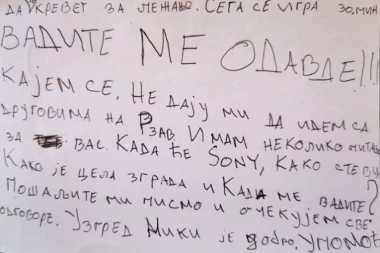 ДА КРЕВЕТ ЗА ЛЕЖАЊЕ. СЕГА СЕ ИГРА 30. МИН
ВАДИТЕ МЕ ОДАВДЕ!!!
КАЈЕМ СЕ. НЕ ДАЈУ МИ ДА ИДЕМ СА
ДРУГОВИМА НА РЗАВ. ИМАМ НЕКОЛИКО ПИТАЊ
ЗА ВАС. КАДА ЋЕ SONY, КАКО СТЕ ВИ
КАКО ЈЕ ЦЕЛА ЗГРАДА И КАДА МЕ ВАДИТЕ?
ПОШАЉИТЕ МИ ПИСМО И ОЧЕКУЈЕМ СВЕ
ОДГОВОРЕ. УЗГРЕД МИКИ ЈЕ ДОБРО.